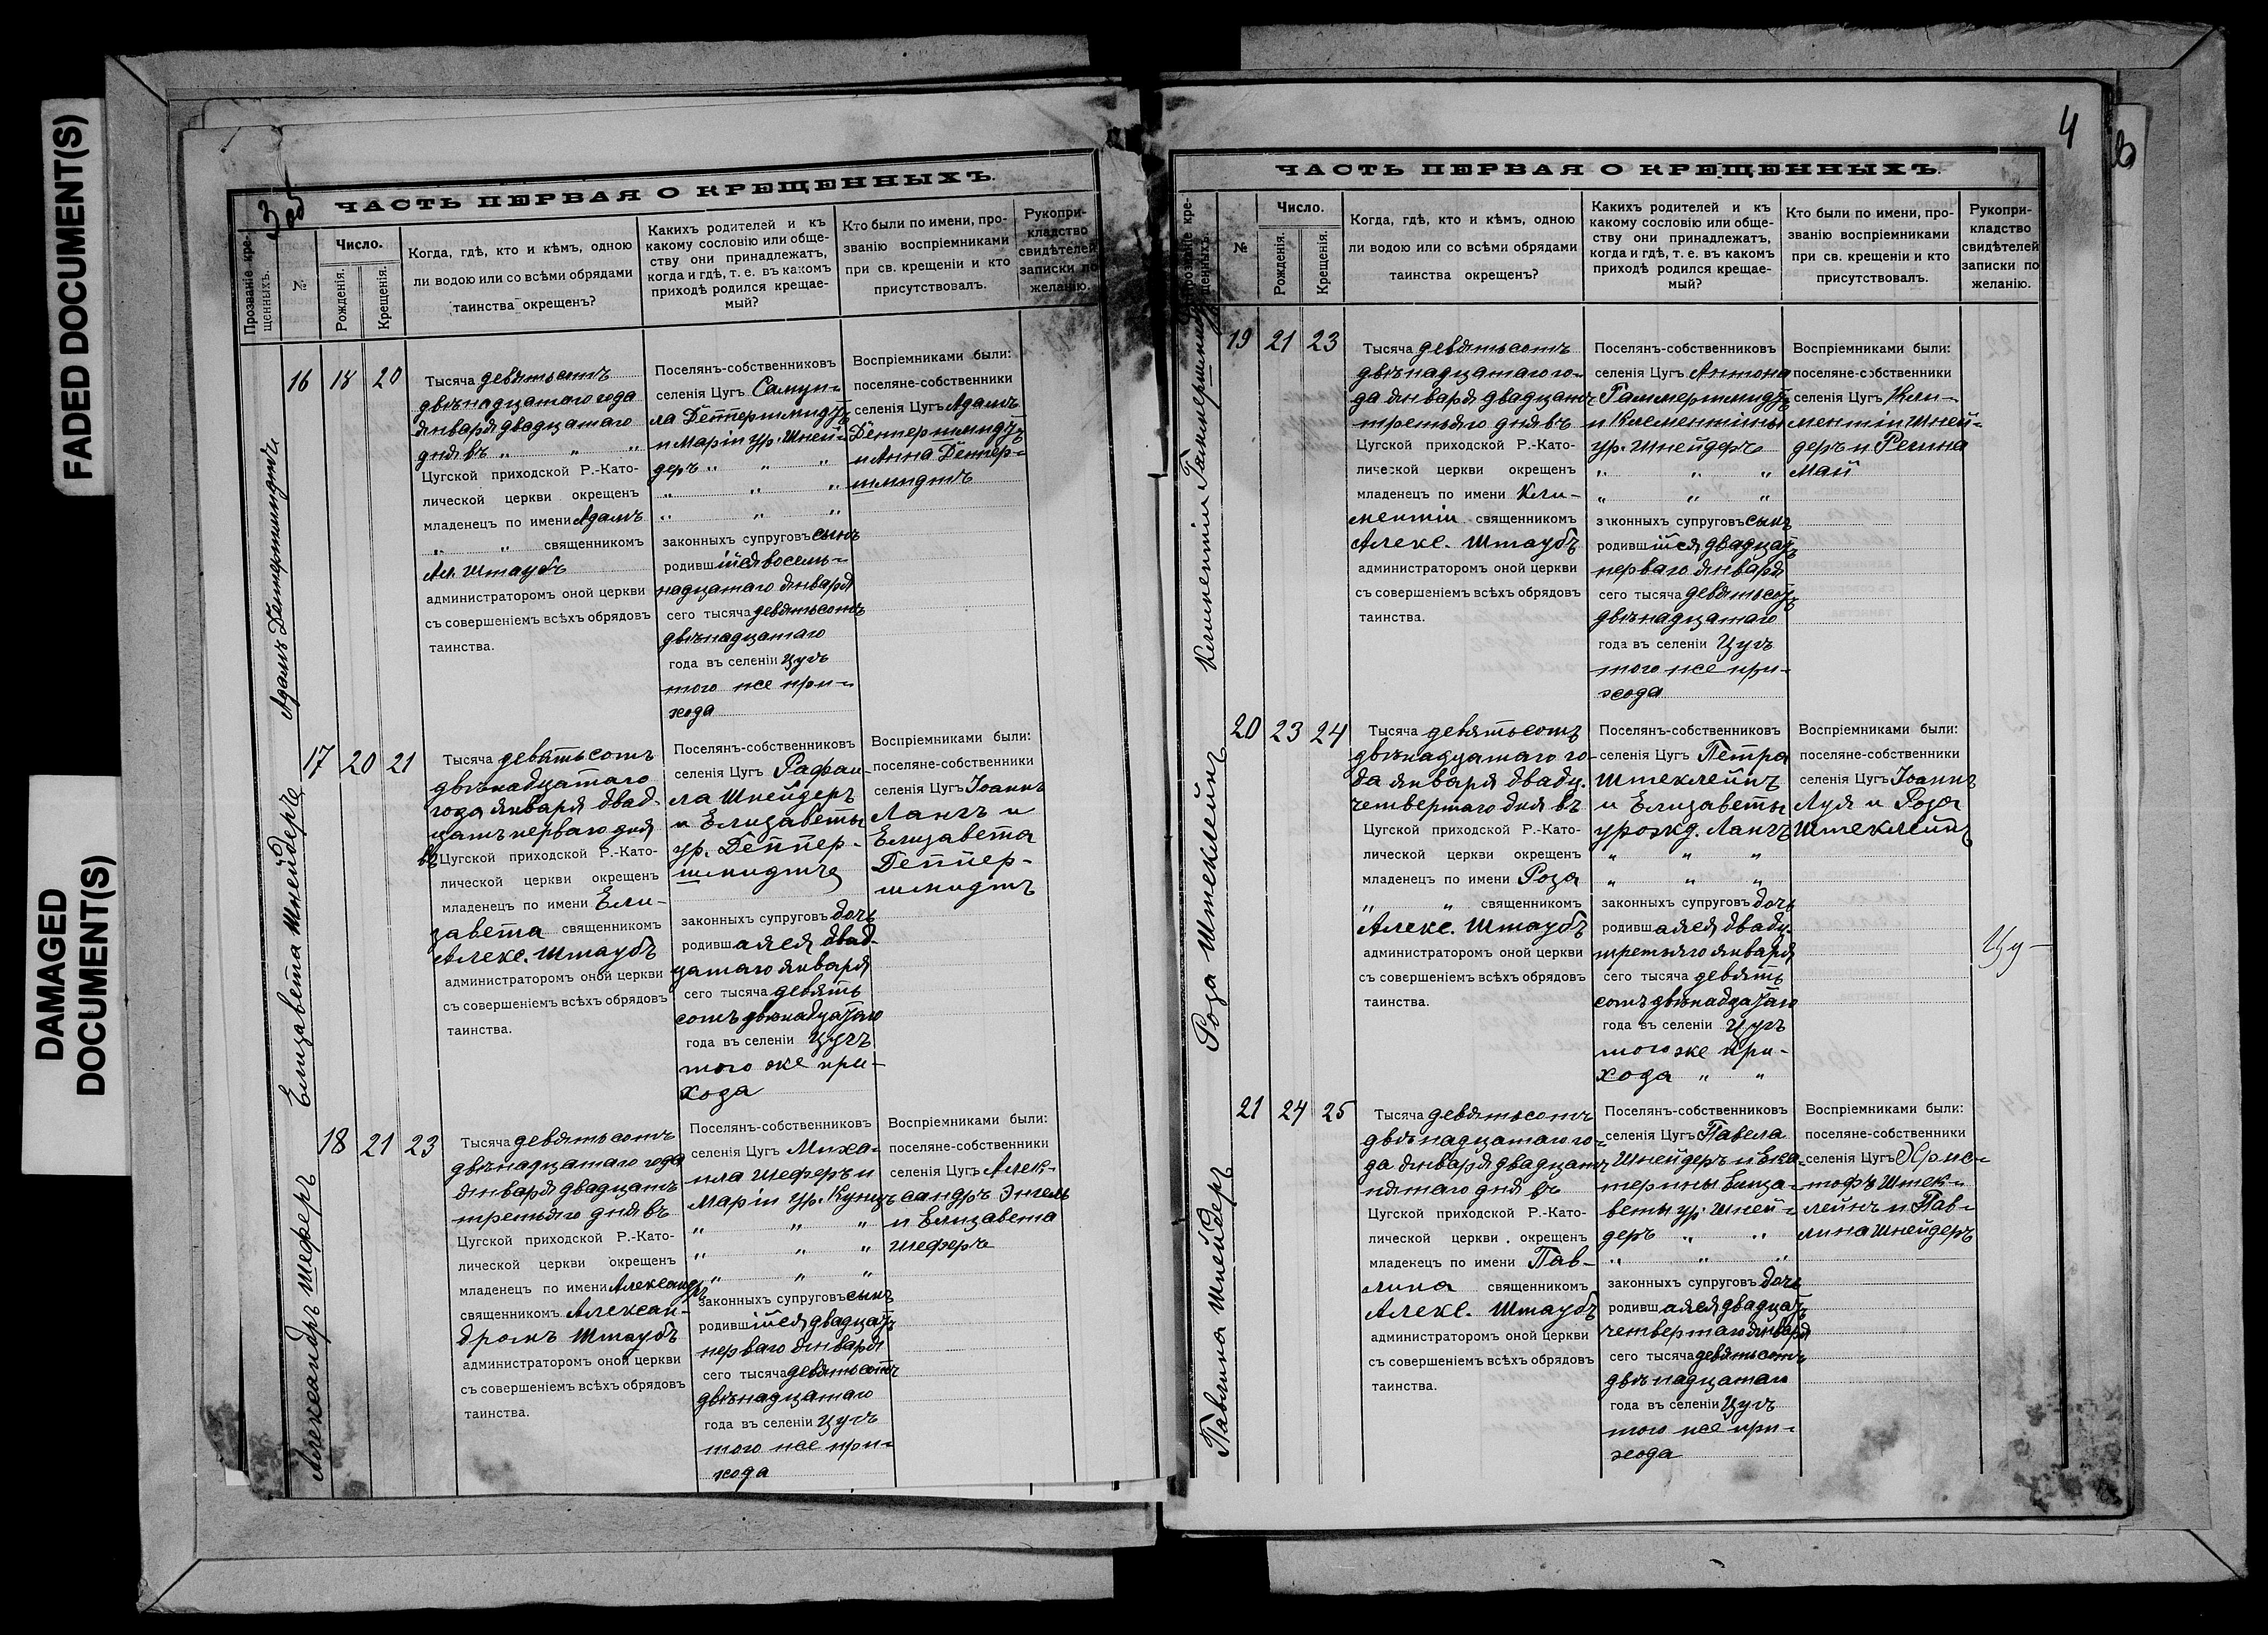 FADED DOCUMENT(S)
DAMAGED
DOCUMENT(S)
3 об
ЧАСТЬ ПЕРВАЯ О КРЕЩЕННЫХЪ.
Прозваніе кре-
щенныхъ.
№
Число.
Рожденія.
Крещенія.
Когда, гдѣ, кто и кѣмъ, одною
ли водою или со всѣми обрядами
таинства окрещенъ?
Какихъ родителей и къ
какому сословію или обще-
ству они принадлежатъ,
когда и гдѣ, т. е. въ какомъ
приходѣ родился крещае-
мый?
Кто были по имени, про-
званію воспріемниками
при св. крещеніи и кто
присутствовалъ.
Рукопри-
кладство
свидѣтелей
записки по
желанію.
Адамъ Деттершмидтъ
16 18 20
Тысяча девятьсотъ
двѣнадцатаго года
января двадцатаго
дня въ „ „ „
Цугской приходской Р.-Като-
лической церкви окрещенъ
младенецъ по имени Адамъ
„ „ священникомъ
Ал. Штаубъ
администраторомъ оной церкви
съ совершеніемъ всѣхъ обрядовъ
таинства.
Поселянъ-собственниковъ
селенія Цугъ Самуи-
ла Деттершмидтъ
и Маріи ур. Шней-
деръ „ „ „
„ „ „
„ „ „
законныхъ супруговъ сынъ
родившійся восем-
надцатаго января
сего тысяча девятьсотъ
двѣнадцатаго
года въ селеніи Цугъ
того же при-
хода
Воспріемниками были:
поселяне-собственники
селенія Цугъ Адамъ
Деттершмидтъ
и Анна Деттер-
шмидтъ
Елизавета Шнейдеръ
17 20 21
Тысяча девятьсотъ
двѣнадцатаго
года января двад-
цать перваго дня
въ Цугской приходской Р.-Като-
лической церкви окрещенъ
младенецъ по имени Ели-
завета священникомъ
Алекс. Штаубъ
администраторомъ оной церкви
съ совершеніемъ всѣхъ обрядовъ
таинства.
Поселянъ-собственниковъ
селенія Цугъ Рафаи-
ла Шнейдеръ
и Елизаветы
ур. Деттер-
шмидтъ
законныхъ супруговъ дочь
родившаяся двад-
цатаго января
сего тысяча девять
сотъ двѣнадцатаго
года въ селеніи Цугъ
того же при-
хода
Воспріемниками были:
поселяне-собственники
селенія Цугъ Іоаннъ
Лангъ и
Елизавета
Деттер-
шмидтъ
Александръ Шеферъ
18 21 23
Тысяча девятьсотъ
двѣнадцатаго года
января двадцать
третьяго дня въ
Цугской приходской Р.-Като-
лической церкви окрещенъ
младенецъ по имени Александръ
священникомъ Алексан-
дромъ Штаубъ
администраторомъ оной церкви
съ совершеніемъ всѣхъ обрядовъ
таинства.
Поселянъ-собственниковъ
селенія Цугъ Миха-
ила Шеферъ и
Маріи ур. Кунцъ
„ „ „
„ „ „
„ „ „
законныхъ супруговъ сынъ
родившійся двадцать
перваго января
сего тысяча девятьсотъ
двѣнадцатаго
года въ селеніи Цугъ
того же при-
хода
Воспріемниками были:
поселяне-собственники
селенія Цугъ Алек-
сандръ Энгель
и Елизавета
Шеферъ
4
ЧАСТЬ ПЕРВАЯ О КРЕЩЕННЫХЪ.
Прозваніе кре-
щенныхъ.
№
Число.
Рожденія.
Крещенія.
Когда, гдѣ, кто и кѣмъ, одною
ли водою или со всѣми обрядами
таинства окрещенъ?
Какихъ родителей и къ
какому сословію или обще-
ству они принадлежатъ,
когда и гдѣ, т. е. въ какомъ
приходѣ родился крещае-
мый?
Кто были по имени, про-
званію воспріемниками
при св. крещеніи и кто
присутствовалъ.
Рукопри-
кладство
свидѣтелей
записки по
желанію.
Климентій Гаммершмидтъ
19 21 23
Тысяча девятьсотъ
двѣнадцатаго го-
да января двадцать
третьяго дня въ
Цугской приходской Р.-Като-
лической церкви окрещенъ
младенецъ по имени Кли-
ментій священникомъ
Алекс. Штаубъ
администраторомъ оной церкви
съ совершеніемъ всѣхъ обрядовъ
таинства.
Поселянъ-собственниковъ
селенія Цугъ Антона
Гаммершмидтъ
и Клементины
ур. Шнейдеръ
„ „ „
„ „ „
законныхъ супруговъ сынъ
родившійся двадцать
перваго января
сего тысяча девятьсотъ
двѣнадцатаго
года въ селеніи Цугъ
того же при-
хода
Воспріемниками были:
поселяне-собственники
селенія Цугъ Кли-
ментій Шней-
деръ и Регина
Май
Роза Штеклейнъ
20 23 24
Тысяча девятьсотъ
двѣнадцатаго го-
да января двадц.
четвертаго дня въ
Цугской приходской Р.-Като-
лической церкви окрещенъ
младенецъ по имени Роза
„ „ священникомъ
Алекс. Штаубъ
администраторомъ оной церкви
съ совершеніемъ всѣхъ обрядовъ
таинства.
Поселянъ-собственниковъ
селенія Цугъ Петра
Штеклейнъ
и Елизаветы
урожд. Лангъ
„ „ „
„ „ „
законныхъ супруговъ дочь
родившаяся двадц.
третьяго января
сего тысяча девять
сотъ двѣнадцатаго
года въ селеніи Цугъ
того же при-
хода „ „
Воспріемниками были:
поселяне-собственники
селенія Цугъ Іоаннъ
Луя и Роза
Штеклейнъ
Цу-
Павлина Шнейдеръ
21 24 25
Тысяча девятьсотъ
двѣнадцатаго го-
да января двадцать
пятаго дня въ
Цугской приходской Р.-Като-
лической церкви окрещенъ
младенецъ по имени Пав-
лина священникомъ
Алекс. Штаубъ
администраторомъ оной церкви
съ совершеніемъ всѣхъ обрядовъ
таинства.
Поселянъ-собственниковъ
селенія Цугъ Павела
Шнейдеръ и Ека-
терины Елиза-
веты ур. Шней-
деръ „ „
„ „ „
законныхъ супруговъ дочь
родившаяся двадцать
четвертаго января
сего тысяча девятьсотъ
двѣнадцатаго
года въ селеніи Цугъ
того же при-
хода
Воспріемниками были:
поселяне-собственники
селенія Цугъ Хрис-
тофъ Штек-
лейнъ и Пав-
лина Шнейдеръ